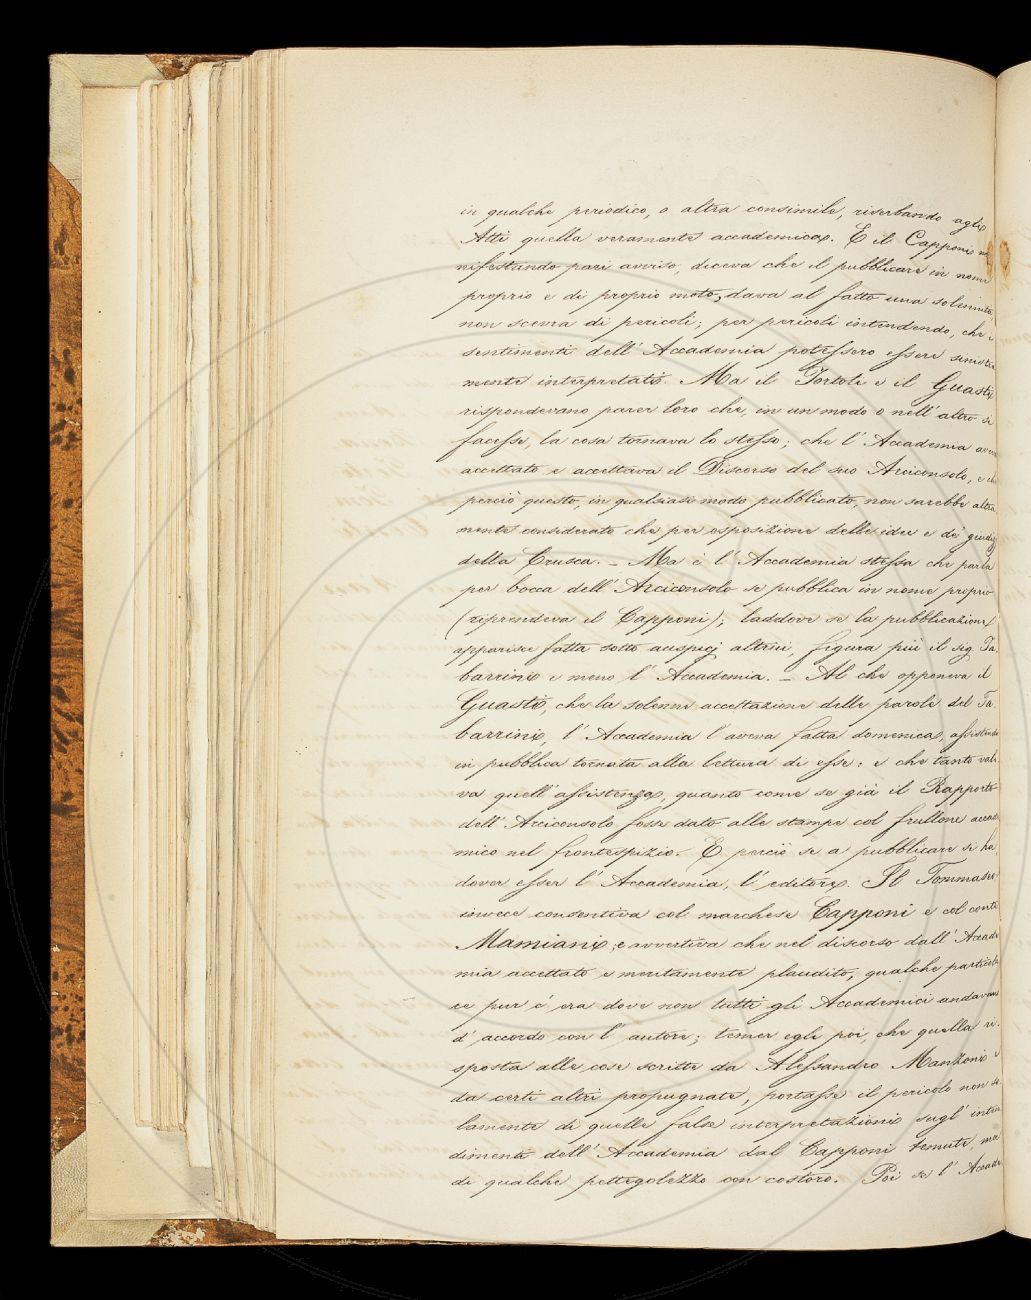 in qualche periodico, o altra consimile, riserbando agli
Atti quella veramente accademica. E il Capponi ma
nifestando pari avviso, diceva che il pubblicare in nome
proprio e di proprio moto, dava al fatto una solennità,
non scevra di pericoli; per pericoli intendendo, che i
sentimenti dell'Accademia potessero essere sinistra
mente interpretati. Ma il Tortoli e il Guasti
rispondevano parer loro che, in un modo o nell'altro si
facesse, la cosa tornava lo stesso; che l'Accademia aveva
accettato e accettava il Discorso del suo Arciconsolo, e che
perciò questo, in qualsiasi modo pubblicato, non sarebbe altra
mente considerato che per esposizione delle idee e de' giudizj
della Crusca. – Ma è l'Accademia stessa che parla
per bocca dell'Arciconsolo se pubblica in nome proprio
(riprendeva il Capponi); laddove se la pubblicazione
apparisce fatta sotto auspicj altrui, figura più il sig. Ta.
barrini e meno l'Accademia. – Al che opponeva il
Guasti, che la solenne accettazione delle parole del Ta.
barrini, l'Accademia l'aveva fatta domenica, assistendo
in pubblica tornata alla lettura di esse: e che tanto vale
va quell'assistenza, quanto come se già il Rapporto
dell'Arciconsolo fosse dato alle stampe col frullone accade
mico nel frontespizio. E perciò se a pubblicare si ha,
dover esser l'Accademia, l'editore. Il Tommaseo
invece consentiva col marchese Capponi e col conte
Mamiani; e avvertiva che nel discorso dall'Accade
mia accettato e meritamente plaudito, qualche particola
ce pur c'era dove non tutti gli Accademici andavano
d'accordo con l'autore; temer egli poi, che quella ri.
sposta alle cose scritte da Alessandro Manzoni e
da certi altri propugnate, portasse il pericolo non so
lamente di quelle false interpretazioni sugl'inten
dimenti dell'Accademia dal Capponi temute, ma
di qualche pettegolezzo con costoro. Poi se l'Accade